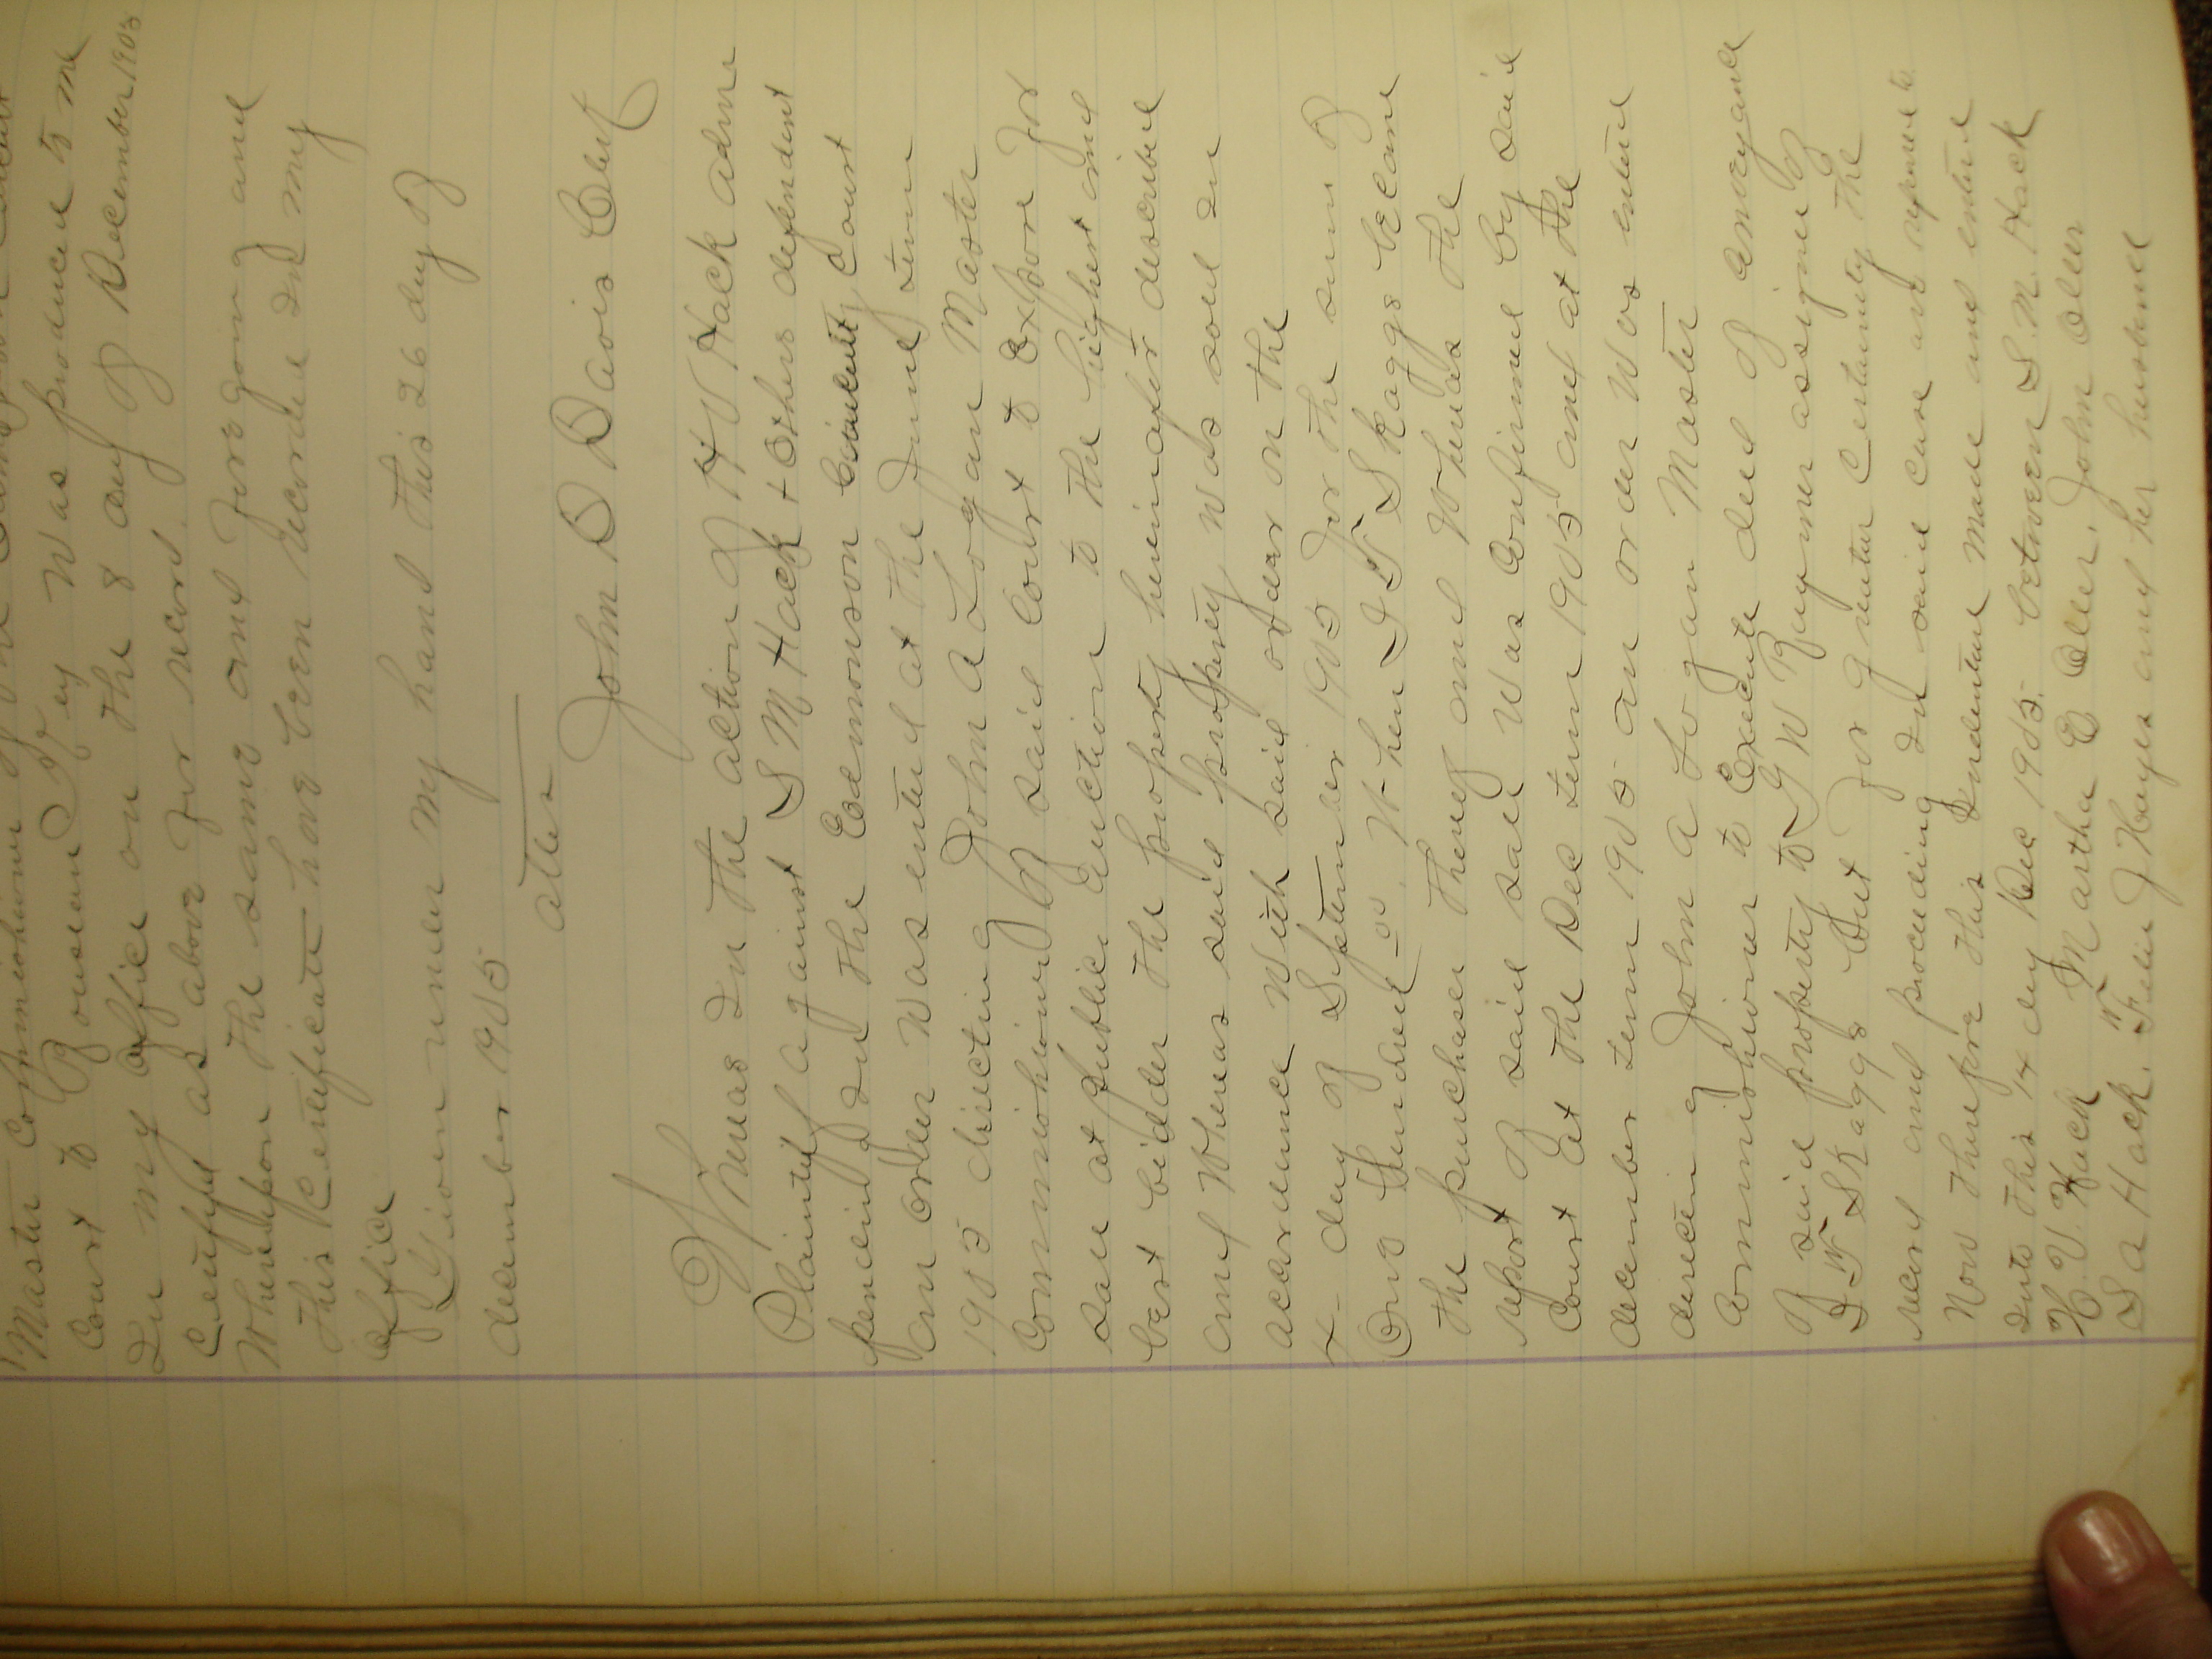 Master Commishioner of the
Court to G W Rouseau They Was produced to me
In my office on the 8 day of December 1905
Certifyed as above for record.
Whereupon The same and foregoing and
This Certificate have been recorded In my
office
Given under My hand This 26 day of
december 1905
attes
John B Davis Clerk
Whereas In The action of H V Hack adm
Plaintif against S M Hack + others defendent
pending In The Edmonson Cicuit Court
an order Was entered at The June term
1905 directing John A Logan Master
Commishioner of said Court to Expose for
sale at public auction to The highest and
best bidder The property hereinafter described
and Whereas said property Was sold In
accordence With said order on The
4- day of September 1905 for The sum of
One Hundred 00. When I T Skaggs became
The purchaser Thereof and Whereas The
report of said sale Was Confirmed by said
Court at The Dec term 1905 and at The
december term 1905 an order Was entered
directing John A Logan Master
Commishioner to Execute deed of Conveyance
of said property to G W Raymer assignee of
I T Skaggs but for greater Certainty The
record and proceeding In said case are refered to
Now Therefore This Indenture Made and entered
into This 14 day Dec 1905. between S. M. Hack
H. V. Hack Martha E Oller. John Oller
S a Hack. J Hayes and her husband